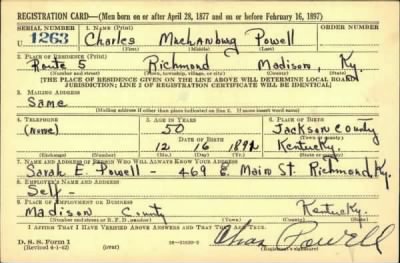 REGISTRATION CARD—(Men born on or after April 28, 1877 and on or before February 16, 1897)
SERIAL NUMBER 1. NAME (Print) ORDER NUMBER
U 1263 Charles Powell
(First) (Middle) (Last)
2. PLACE OF RESIDENCE (Print)
Route 5 Richmond Madison, Ky.
(Number and street) (Town, township, village, or city) (County) (State)
[THE PLACE OF RESIDENCE GIVEN ON THE LINE ABOVE WILL DETERMINE LOCAL BOARD
JURISDICTION; LINE 2 OF REGISTRATION CERTIFICATE WILL BE IDENTICAL]
3. MAILING ADDRESS
Same
[Mailing address if other than place indicated on line 2. If same insert word same]
4. TELEPHONE 5. AGE IN YEARS 6. PLACE OF BIRTH
(None) 50 Jackson County
DATE OF BIRTH (Town or county)
12 16 1892 Kentucky.
(Exchange) (Number) (Mo.) (Day) (Yr.) (State or country)
7. NAME AND ADDRESS OF PERSON WHO WILL ALWAYS KNOW YOUR ADDRESS
Sarah E. Powell - 469 E. Main St. Richmond Ky.
8. EMPLOYER'S NAME AND ADDRESS
Self -
9. PLACE OF EMPLOYMENT OR BUSINESS
Madison County Kentucky.
(Number and street or R. F. D. number) (Town) (County) (State)
I AFFIRM THAT I HAVE VERIFIED ABOVE ANSWERS AND THAT THEY ARE TRUE.
D. S. S. Form 1 Chas Powell
(Revised 4-1-42) (over) (Registrant's signature)